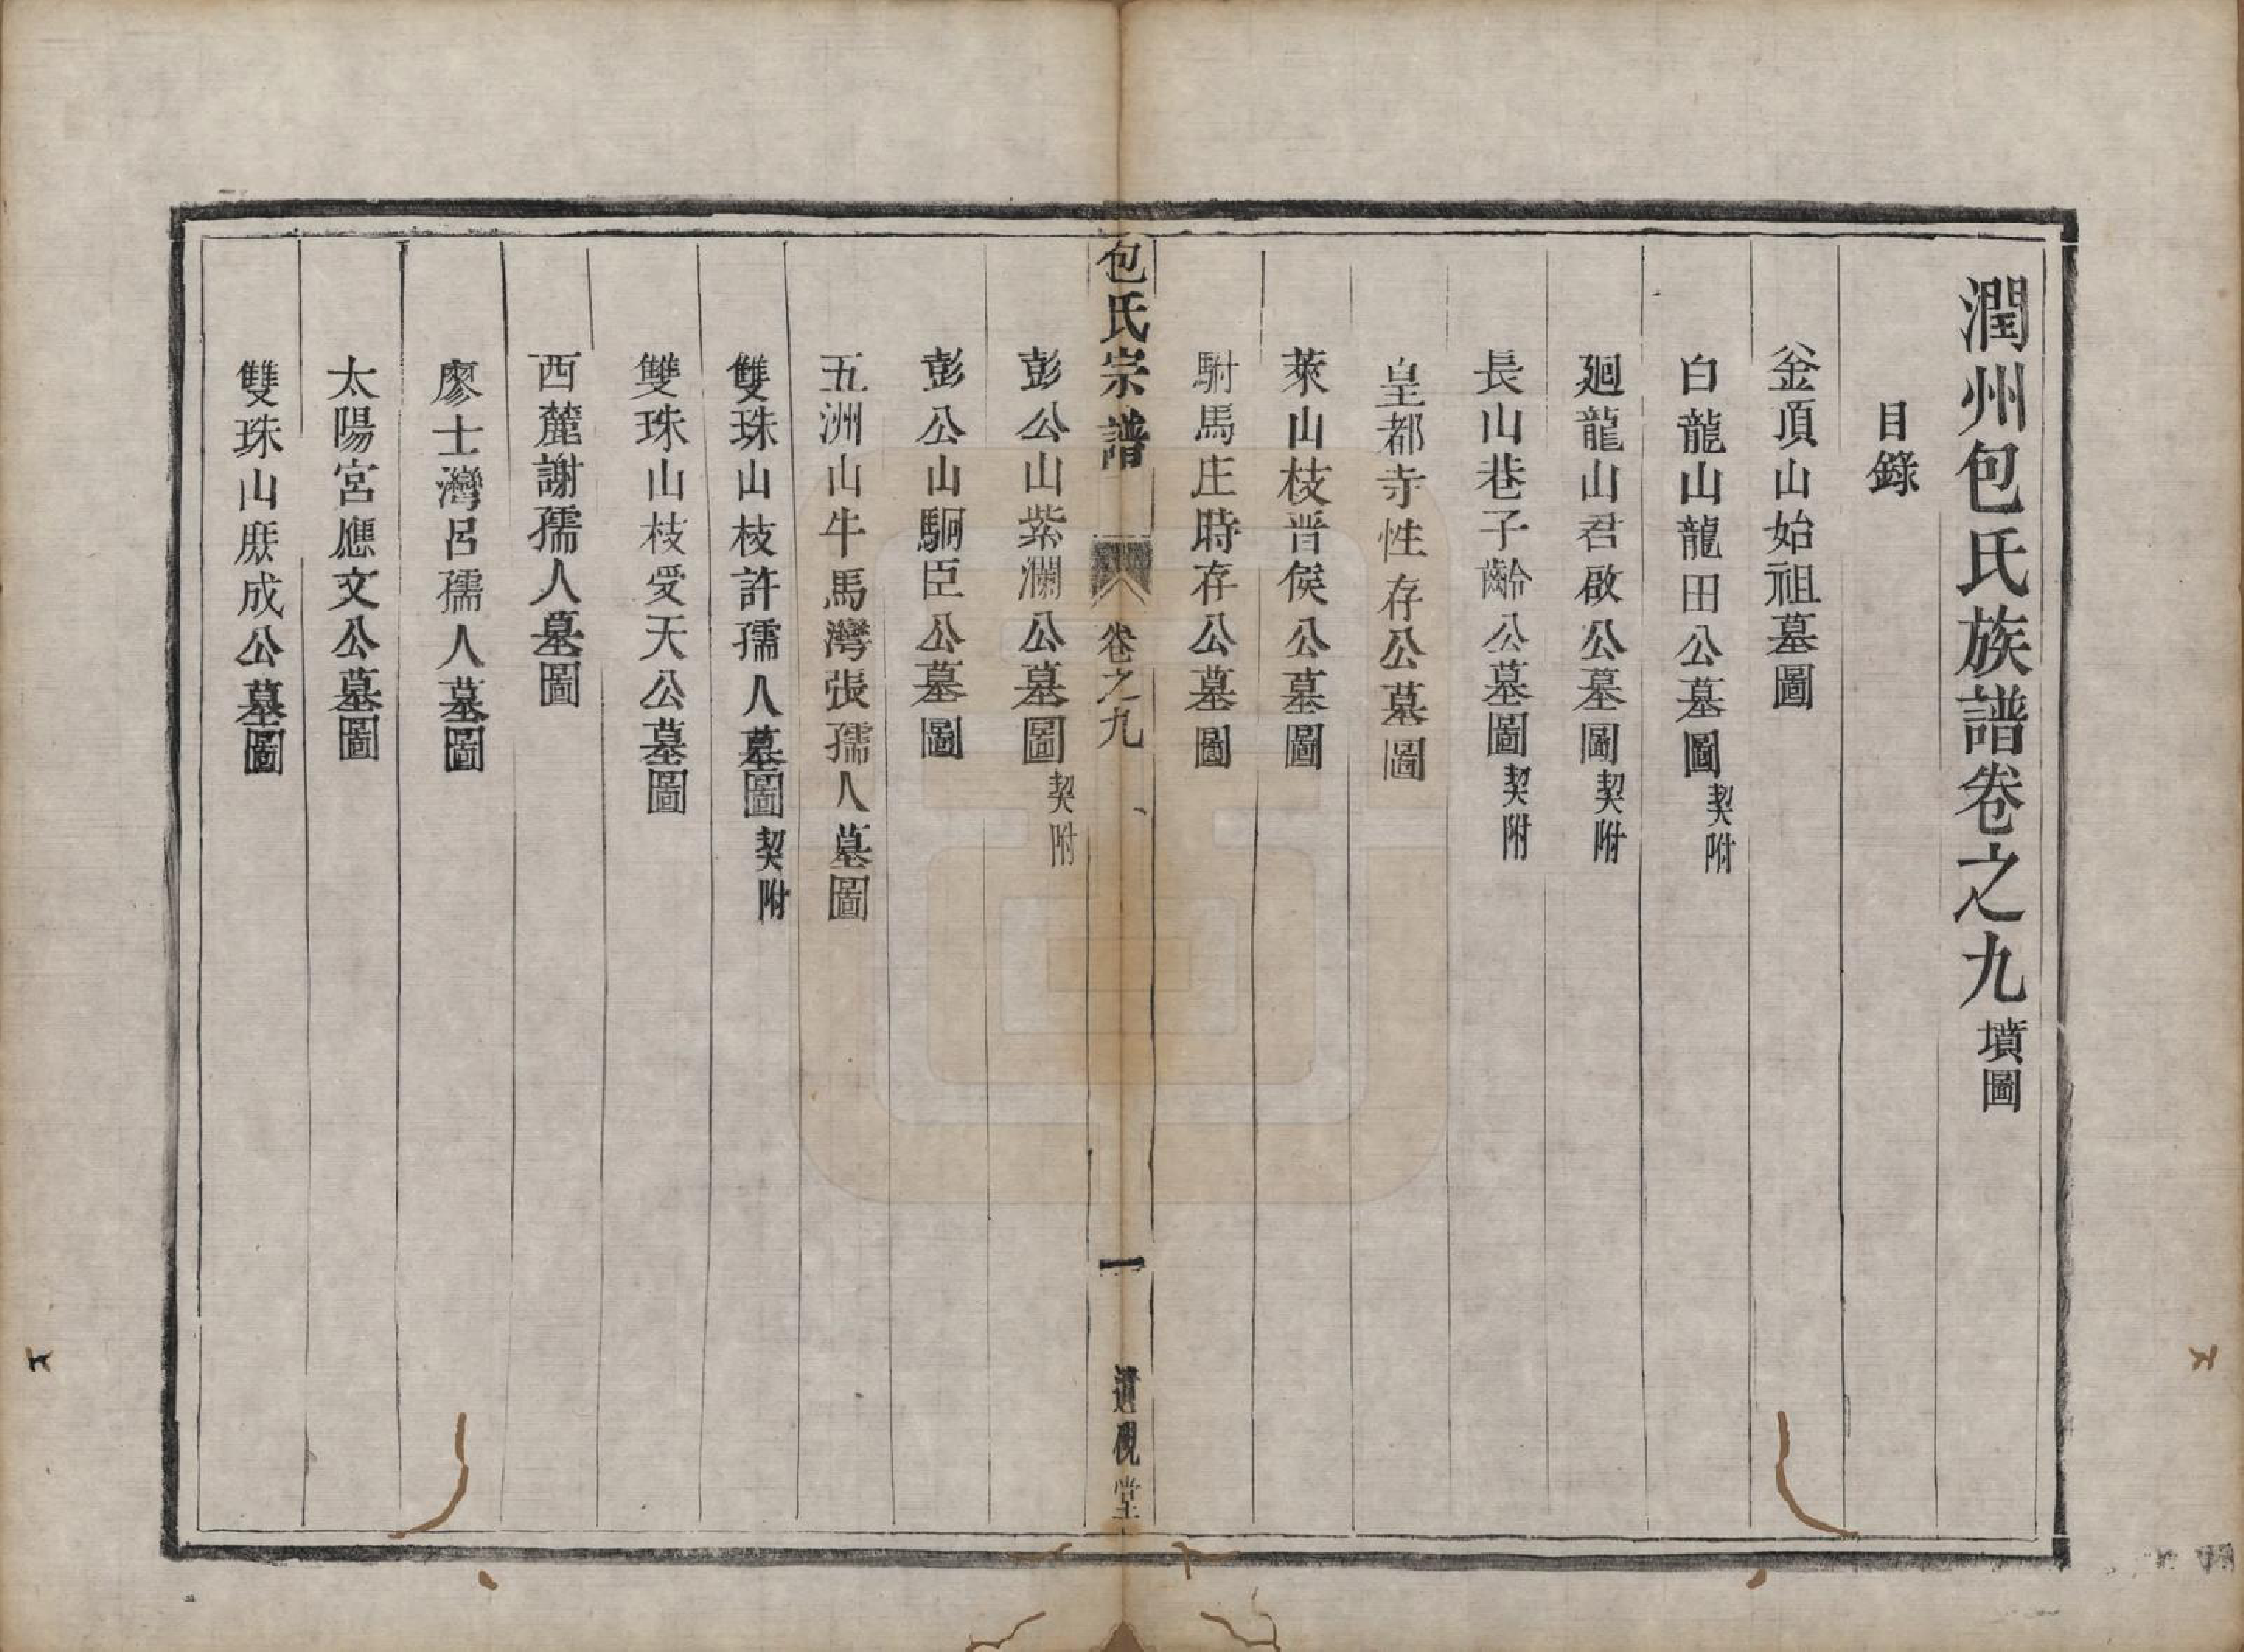 潤州包氏族譜卷之九墳圖
目錄
釡頂山始祖墓圖
白龍山龍田公墓圖契附
廻龍山君啟公墓圖契附
長山巷子齡公墓圖契附
皇都寺性存公墓圖
萊山枝晋侯公墓圖
駙馬庄時存公墓圖
包氏宗譜 卷之九 一 遺硯堂
彭公山紫瀾公墓圖契附
彭公山駉臣公墓圖
五洲山牛馬灣張孺人墓圖
雙珠山枝許孺人墓圖契附
雙珠山枝受天公墓圖
西麓謝孺人墓圖
廖士灣呂孺人墓圖
太陽宮應文公墓圖
雙珠山庶成公墓圖